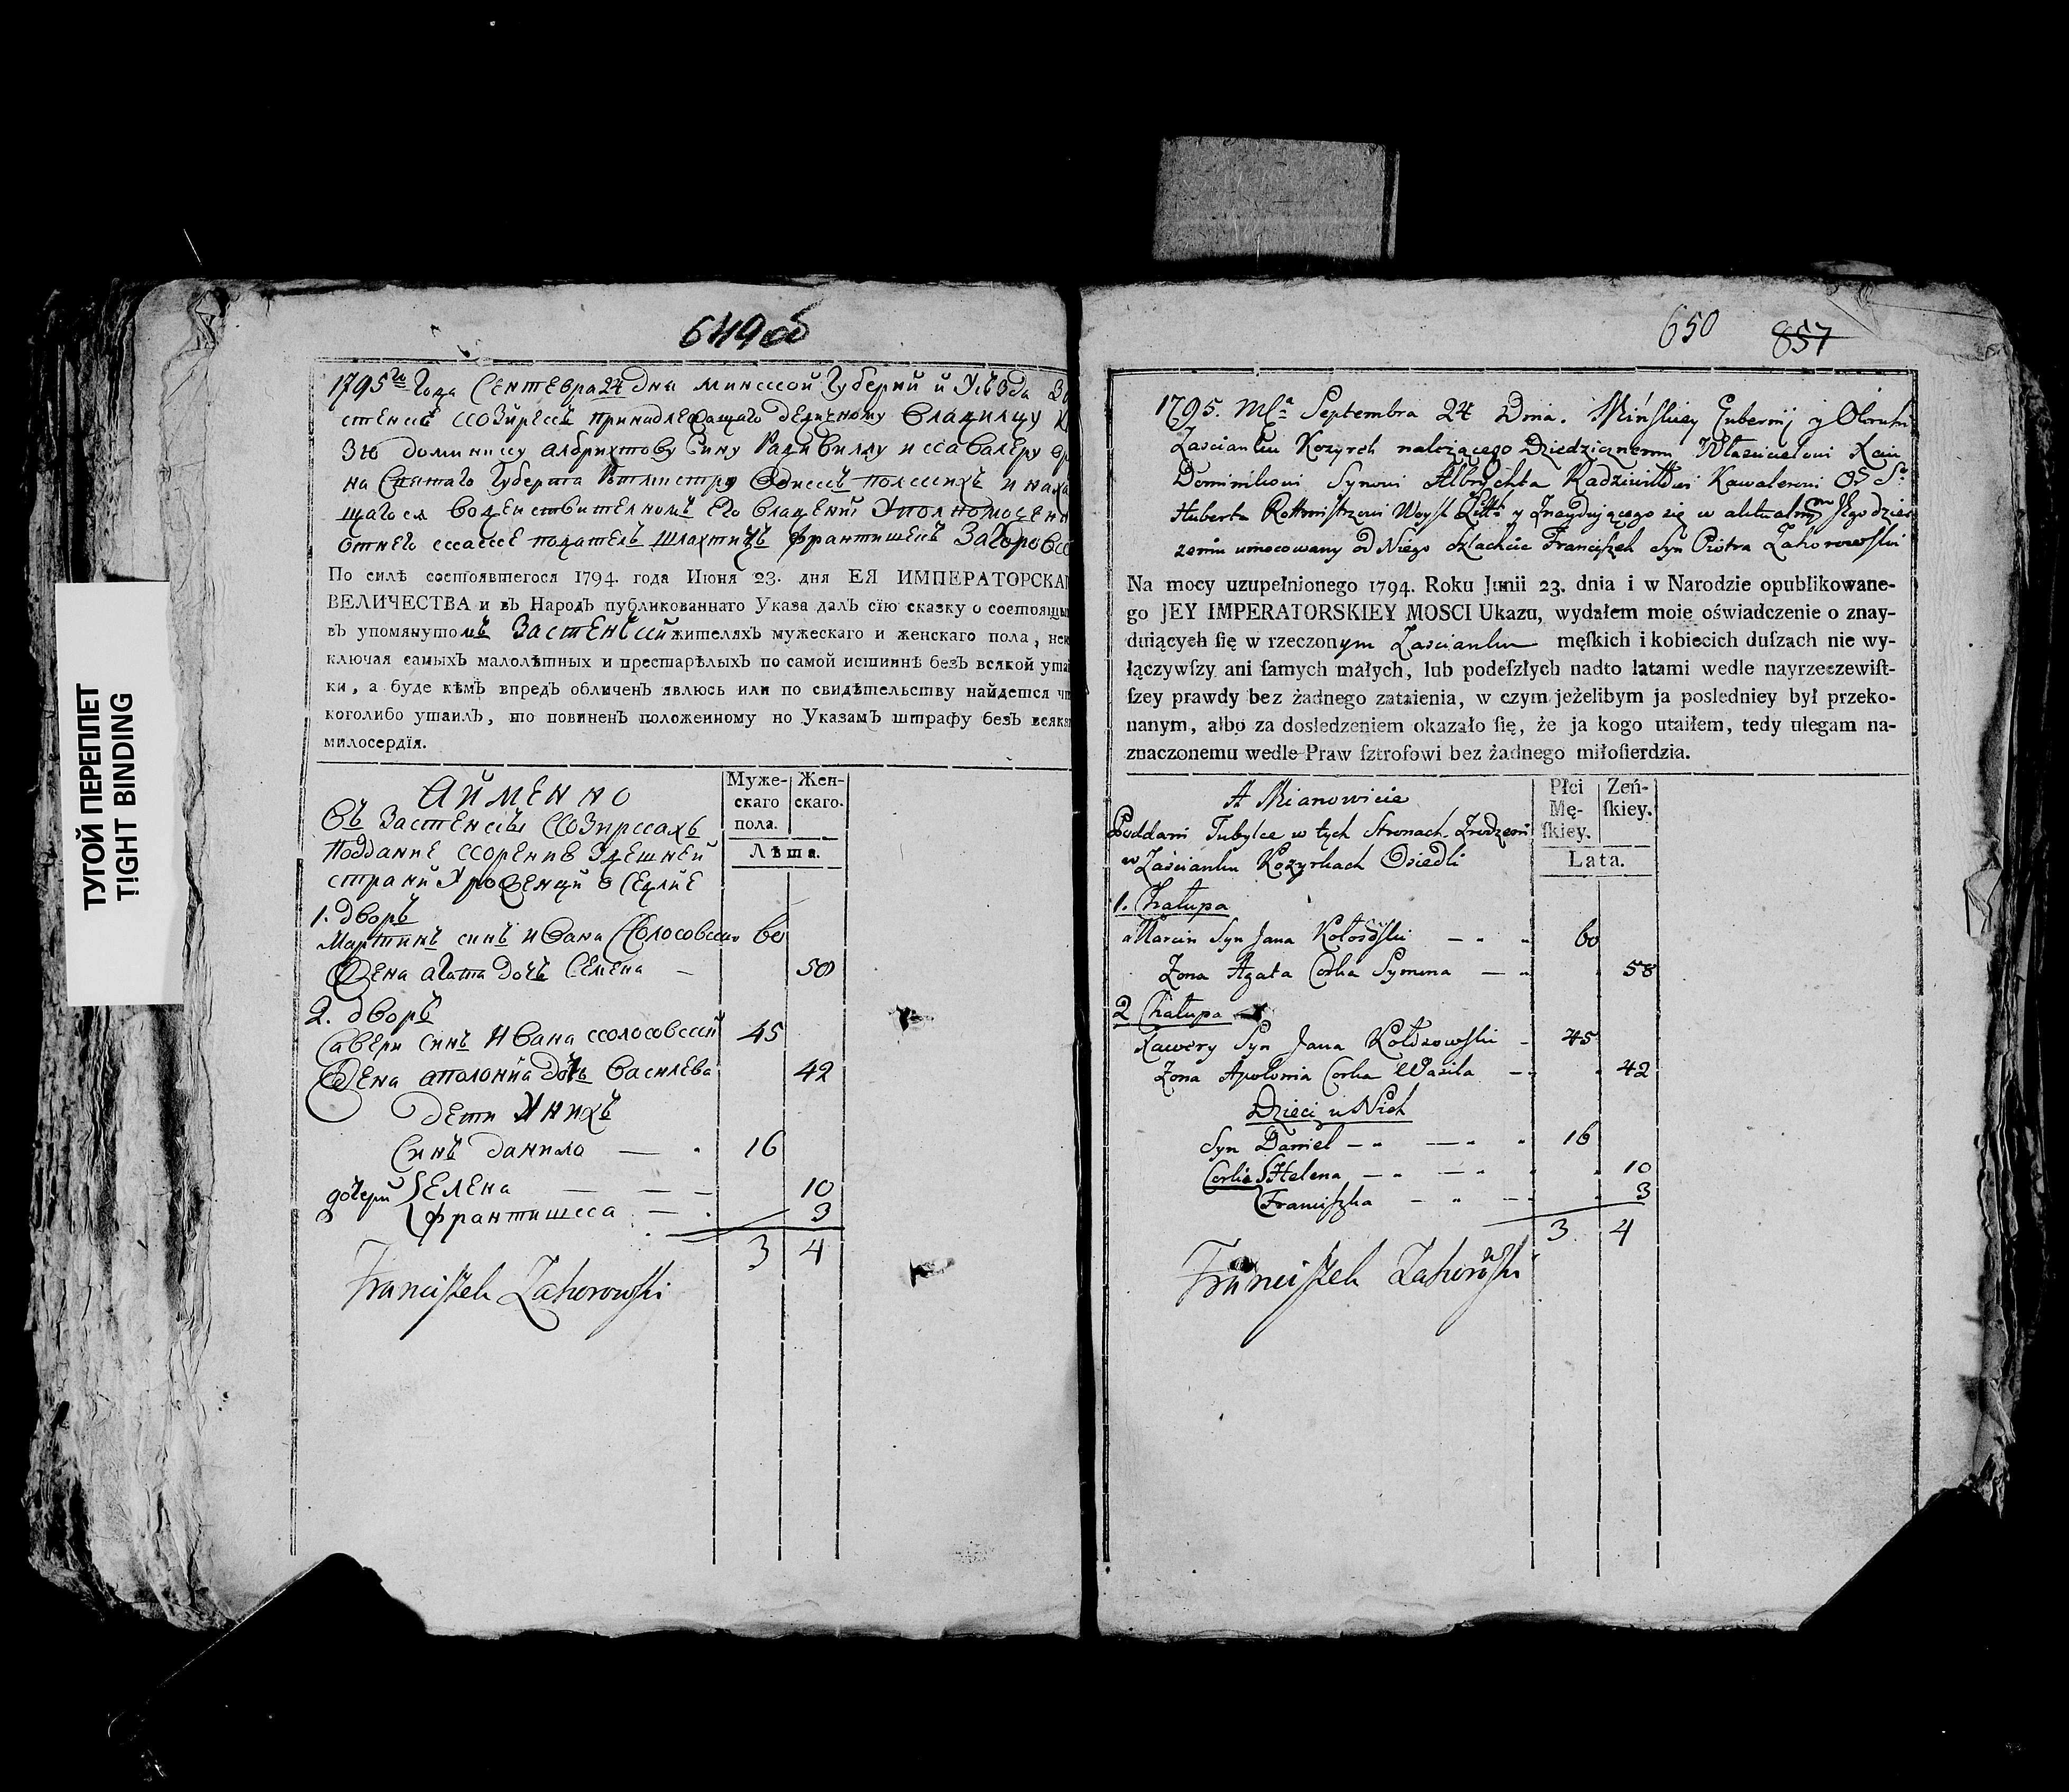 ТУГОЙ ПЕРЕПЛЕТ
TIGHT BINDING
649об
1795го Года Сентебра 24 Дня Минской Губерни и Уезда
принадлежащаго дедичному Владилцу
Зю Доминику Албрихтову Сину Радивиллу и Кавалеру
на Святаго Губерта Ротмистру Войскъ полскихъ и наха
щагося в действителномъ Его Владении Уполномочени
отнего податель шляхтичъ Франтишекъ Загоровс
По силѣ состоявшегося 1794. года Июня 23. дня ЕЯ ИМПЕРАТОРСКА
ВЕЛИЧЕСТВА и вЪ НародЪ публикованнаго Указа далЪ сїю сказку о состоящи
вЪ упомянутомъ Застенки жителяхЪ мужескаго и женскаго пола, неи
ключая самыхЪ малолѣтных и престарѣлыхЪ по самой истиннѣ безЪ всякой ута
ки, а буде кѣмЪ впредЪ обличенЪ явлюсь или по свидѣтельству найдется чт
коголибо утаилЪ, то повиненЪ положенному по УказамЪ штрафу безЪ всяка
милосердїя.
Муже-скаго пола.
Жен-скаго.
Лѣта.
Аймено
Въ Застенкы Козиркахъ
Поддание корение Здешней
страни Уроженци Оседлие
1. дворъ
Мартинъ синъ Ивана Колосовски 60
Жена Агата дочъ Семена — 58
2. дворъ
Савери синъ Ивана Колосовский 45
Жена Аполония дочъ Василева 42
Дети Унихъ
Синъ Данило — 16
дочери Елена — — — 10
Франтишка — 3
3 4
Franciszek Zahorowski
650 857
1795. Mca Septembra 24 Dnia. Mińskiey Gubernij y Okruhu
Zascianku Kozyrek należącego Dziedzicznemu Włascicielowi Xciu
Dominikowi Synowi Albrychta Radziwiłłowi Kawalerowi Or Sgo
Huberta Rottmistrzowi Woysk Litt: y Znaydującego się w aktualnym Jego dzier
zeniu umocowany od Niego szlachcic Franciszek Syn Piotra Zahorowski
Na mocy uzupełnionego 1794. Roku Junii 23. dnia i w Narodzie opublikowane-
go JEY IMPERATORSKIEY MOSCI Ukazu, wydałem moie oświadczenie o znay-
duiących ſię w rzeczonym Zascianku męſkich i kobiecich duſzach nie wy-
łączywſzy ani ſamych małych, lub podeſzłych nadto latami wedle nayrzeczewiſt-
ſzey prawdy bez żadnego zataienia, w czym jeżelibym ja posledniey był przeko-
nanym, albo za dosledzeniem okazało ſię, że ja kogo utaiłem, tedy ulegam na-
znaczonemu wedle Praw ſztrofowi bez żadnego miłoſierdzia.
Płci Mę-ſkiey.
Zeń-ſkiey.
Lata.
A Mianowicie
Poddani Tubylce w tych Stronach Zrodzeni
w Zascianku Kozyrkach Osiedli
1. Chałupa
Marcin Syn Jana Kołosowski — 60
Zona Agata Corka Symona — 58
2 Chałupa
Xawery Syn Jana Kołosowski — 45
Zona Apolonia Corka Wasila — 42
Dzieci u Nich
Syn Daniel — — 16
Corki Helena — — 10
Franciszka — — 3
3 4
Franciszek Zahorowski